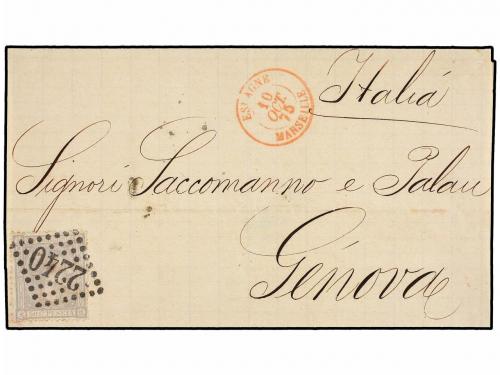 ESPAGNE
10
OCT
75
MARSEILLE
Italiá
Signori Saccomanno e Palau
Génova
2240